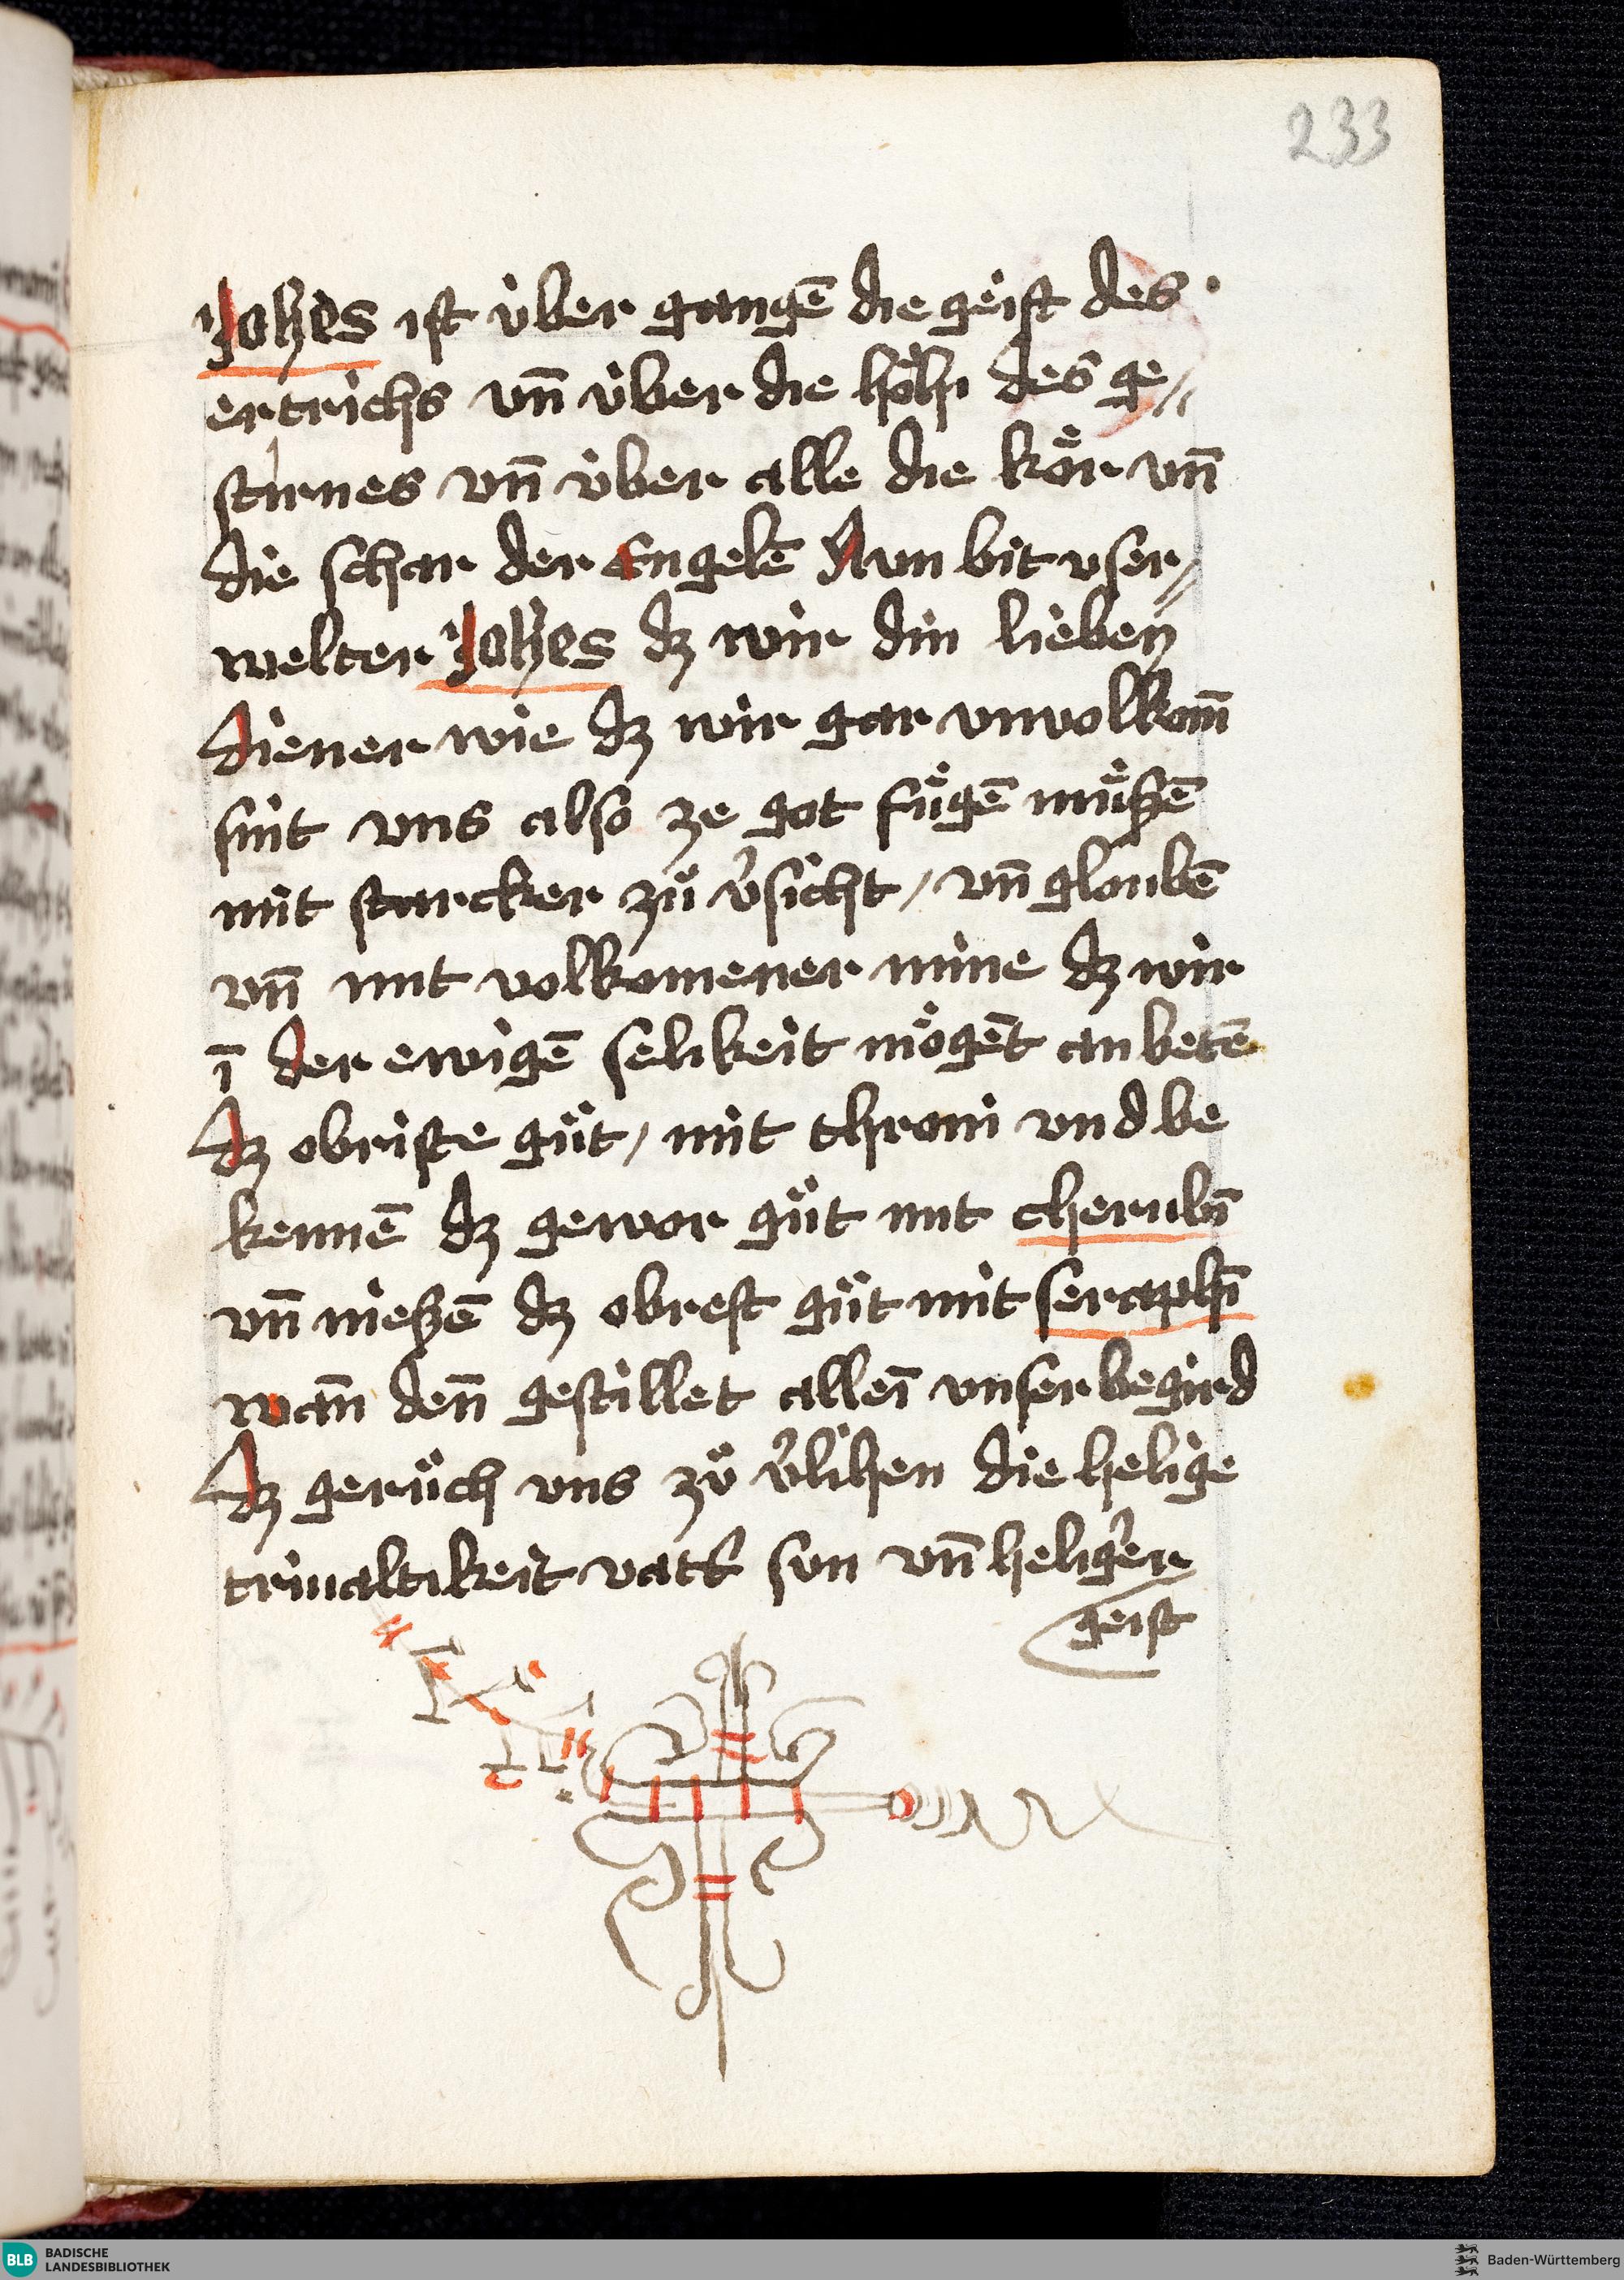 233
Johes ist über gangē die geist des
ertrichs vn̄ über die höhi des ge//
stirnes vn̄ über alle die kör vn̄
die schar der Engelē Nun bit vser//
welter Johes dz wir din lieben
diener wie dz wir gar vnvolkom̄
sint vns also ze got fügē müßē
mit starcker zů v̓sicht / vn̄ gloubē
vn̄ mit volkomener mine dz wir
ī der ewigē selikeit mögēt an betē
dz obriste gůt / mit throni vnd be
kennē dz gewor gůt mit cherubī
vn̄ nießē dz obrest gůt mit seraphī
wan̄ den̄ gestillet alleī vnser begird
dz gerůch vns zů v̓lihen die helige
triualtikeit vatt̓ sun vn̄ heliger
geist
BLB BADISCHE
LANDESBIBLIOTHEK
Baden-Württemberg